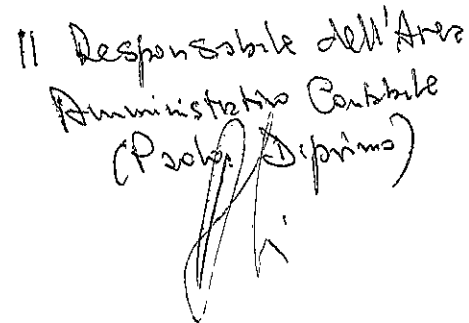 Il Responsabile dell'Area
Amministrativo Contabile
(Paolo Diprimo)